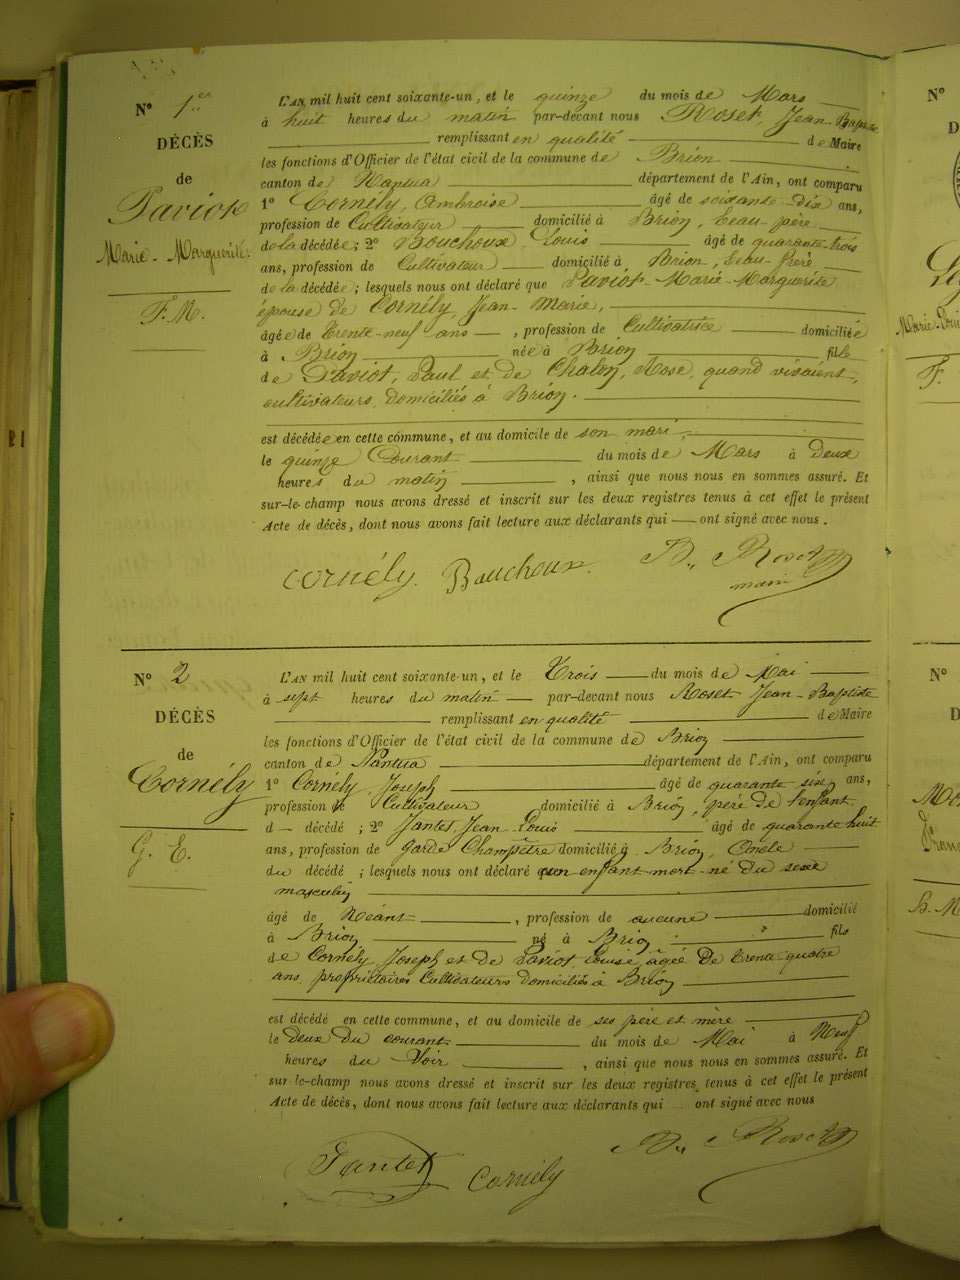 N° 1er
DÉCÈS
de
Paviot
Marie-Marguerite
F. M.
L'AN mil huit cent soixante-un, et le quinze du mois de Mars
à huit heures du matin par-devant nous Roset, Jean-Baptiste
remplissant en qualité de Maire
les fonctions d'Officier de l'état civil de la commune de Brion
canton de Nantua département de l'Ain, ont comparu
1° Cornély, Ambroise âgé de soixante-dix ans,
profession de Cultivateur domicilié à Brion, beau-père
de la décédée; 2° Bouchoux, Louis âgé de quarante-trois
ans, profession de Cultivateur domicilié à Brion, beau-frère
de la décédée; lesquels nous ont déclaré que Paviot-Marie-Marguerite
épouse de Cornély, Jean-Marie,
âgée de trente-neuf ans, profession de Cultivatrice domiciliée
à Brion née à Brion fille
de Paviot, Paul et de Chalon, Rose, quand vivaient,
cultivateurs, domiciliés à Brion.
est décédée en cette commune, et au domicile de son mari,
le quinze Courant du mois de Mars à deux
heures du matin, ainsi que nous nous en sommes assuré. Et
sur-le-champ nous avons dressé et inscrit sur les deux registres tenus à cet effet le présent
Acte de décès, dont nous avons fait lecture aux déclarants qui — ont signé avec nous.
cornély. Bouchoux. B. Roset
maire
N° 2
DÉCÈS
de
Cornély
G. E.
L'AN mil huit cent soixante-un, et le trois du mois de Mai
à sept heures du matin par-devant nous Roset Jean-Baptiste
remplissant en qualité de Maire
les fonctions d'Officier de l'état civil de la commune de Brion
canton de Nantua département de l'Ain, ont comparu
1° Cornély, Joseph âgé de quarante six ans,
profession de Cultivateur domicilié à Brion, père de l'enfant
d — décédé; 2° Jantet, Jean-Louis âgé de quarante huit
ans, profession de Garde Champêtre domicilié à Brion, Oncle
du décédé; lesquels nous ont déclaré qu'un enfant mort-né du sexe
masculin
âgé de Néant, profession de aucune domicilié
à Brion né à Brion fils
de Cornély, Joseph et de Paviot Louise, âgée de trente-quatre
ans, propriétaires Cultivateurs domiciliés à Brion
est décédé en cette commune, et au domicile de ses père et mère
le deux du courant du mois de Mai à Neuf
heures du Soir, ainsi que nous nous en sommes assuré. Et
sur-le-champ nous avons dressé et inscrit sur les deux registres tenus à cet effet le présent
Acte de décès, dont nous avons fait lecture aux déclarants qui ont signé avec nous
Jantet Cornély B. Roset
N°
N°